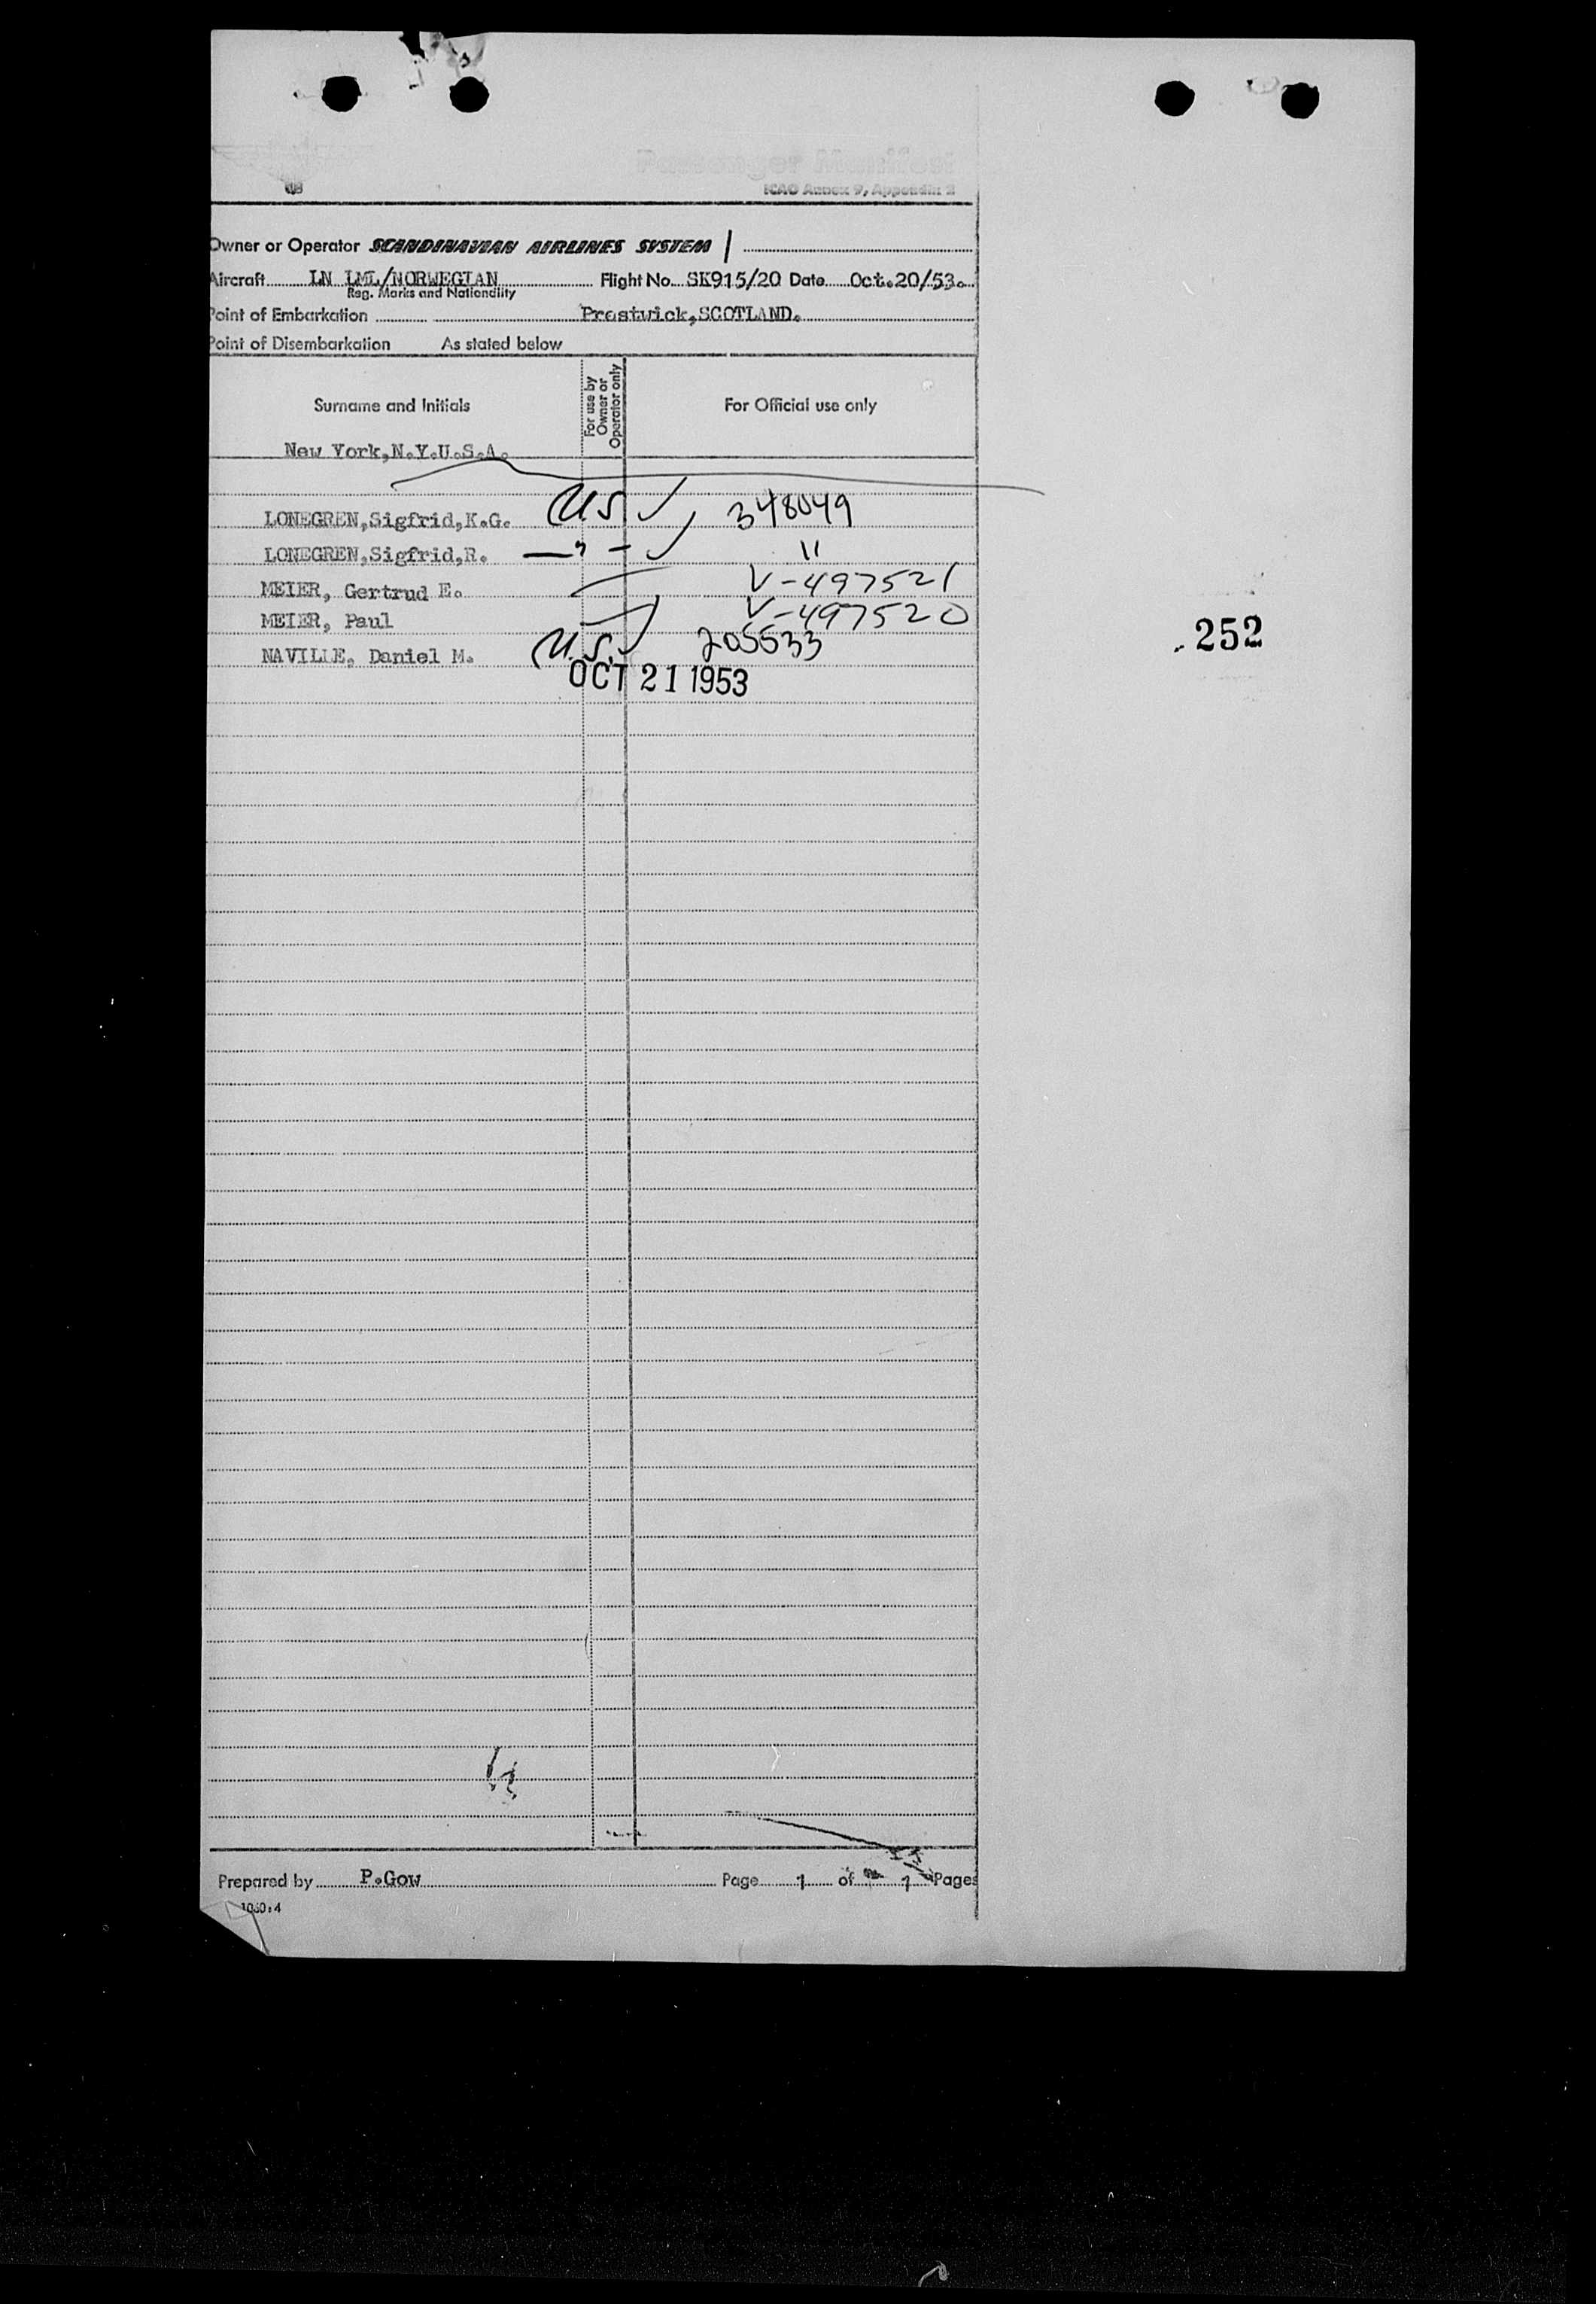 Passenger Manifest
ICAO Annex 9, Appendix 2
Owner or Operator SCANDINAVIAN AIRLINES SYSTEM
Aircraft LN LML/NORWEGIAN Flight No. SK915/20 Date Oct.20/53.
Reg. Marks and Nationality
Point of Embarkation Prestwick,SCOTLAND.
Point of Disembarkation As stated below
Surname and Initials For use by Owner or Operator only For Official use only
New York,N.Y.U.S.A.
LONEGREN,Sigfrid,K.G. U.S 348049
LONEGREN,Sigfrid,R. — " — "
MEIER, Gertrud E. V-497521
MEIER, Paul V-497520
252
NAVILLE, Daniel M. U.S. 205533
OCT 21 1953
Prepared by P.Gow Page 1 of 1 Pages
1060:4